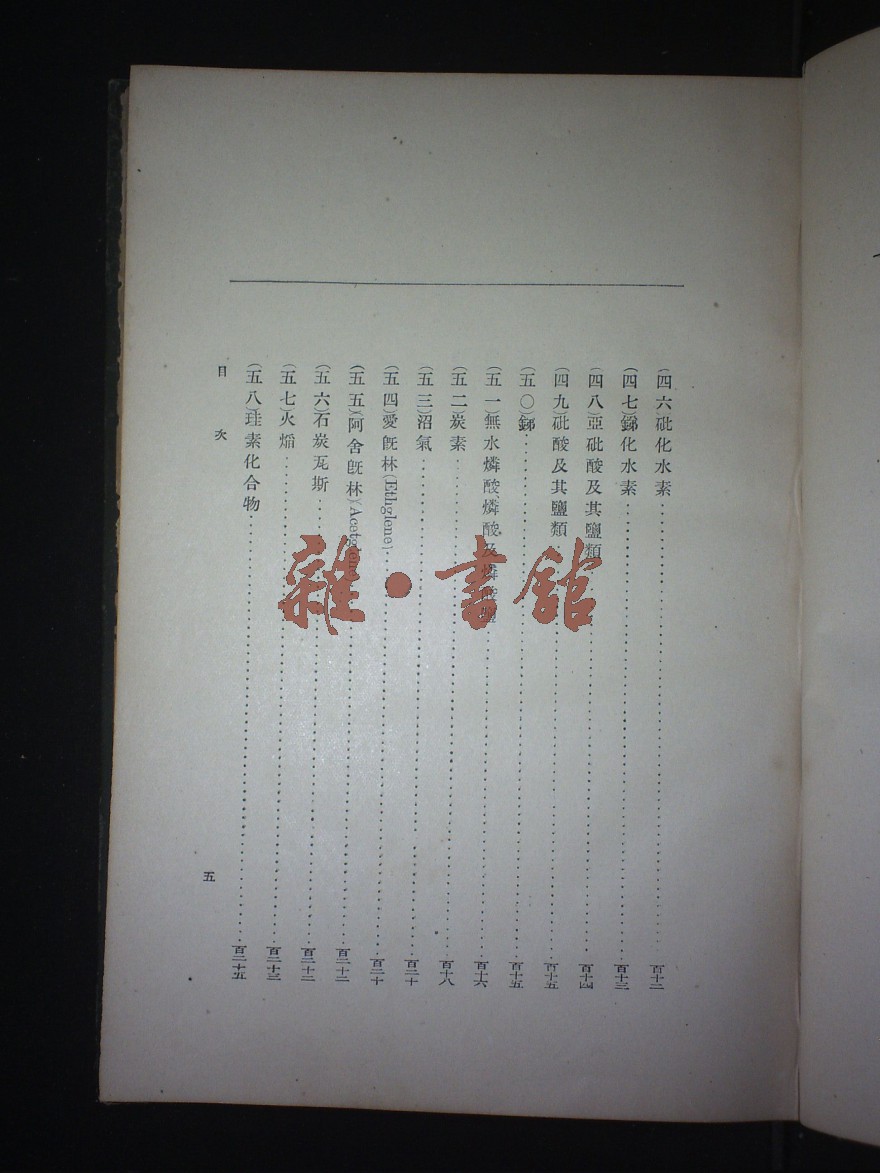 (四六)砒化水素……百十二
(四七)銻化水素……百十三
(四八)亞砒酸及其鹽類……百十四
(四九)砒酸及其鹽類……百十五
(五〇)銻……百十五
(五一)無水燐酸燐酸及燐酸鹽……百十六
(五二)炭素……百十八
(五三)沼氣……百二十
(五四)愛旣林(Ethglene)……百二十
(五五)阿舍旣林……百二十二
(五六)石炭瓦斯……百二十二
(五七)火焰……百二十三
(五八)珪素化合物……百二十五
目次
五
雜·書館